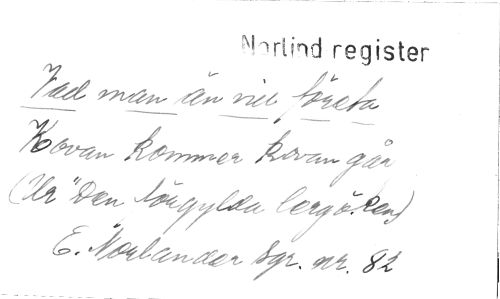 Norlind register
Vad man än vill förefa
Kovan kommer kovan går
(Ur "Den förgyllda lergöken)
E. Norlander Sgr. nr. 82